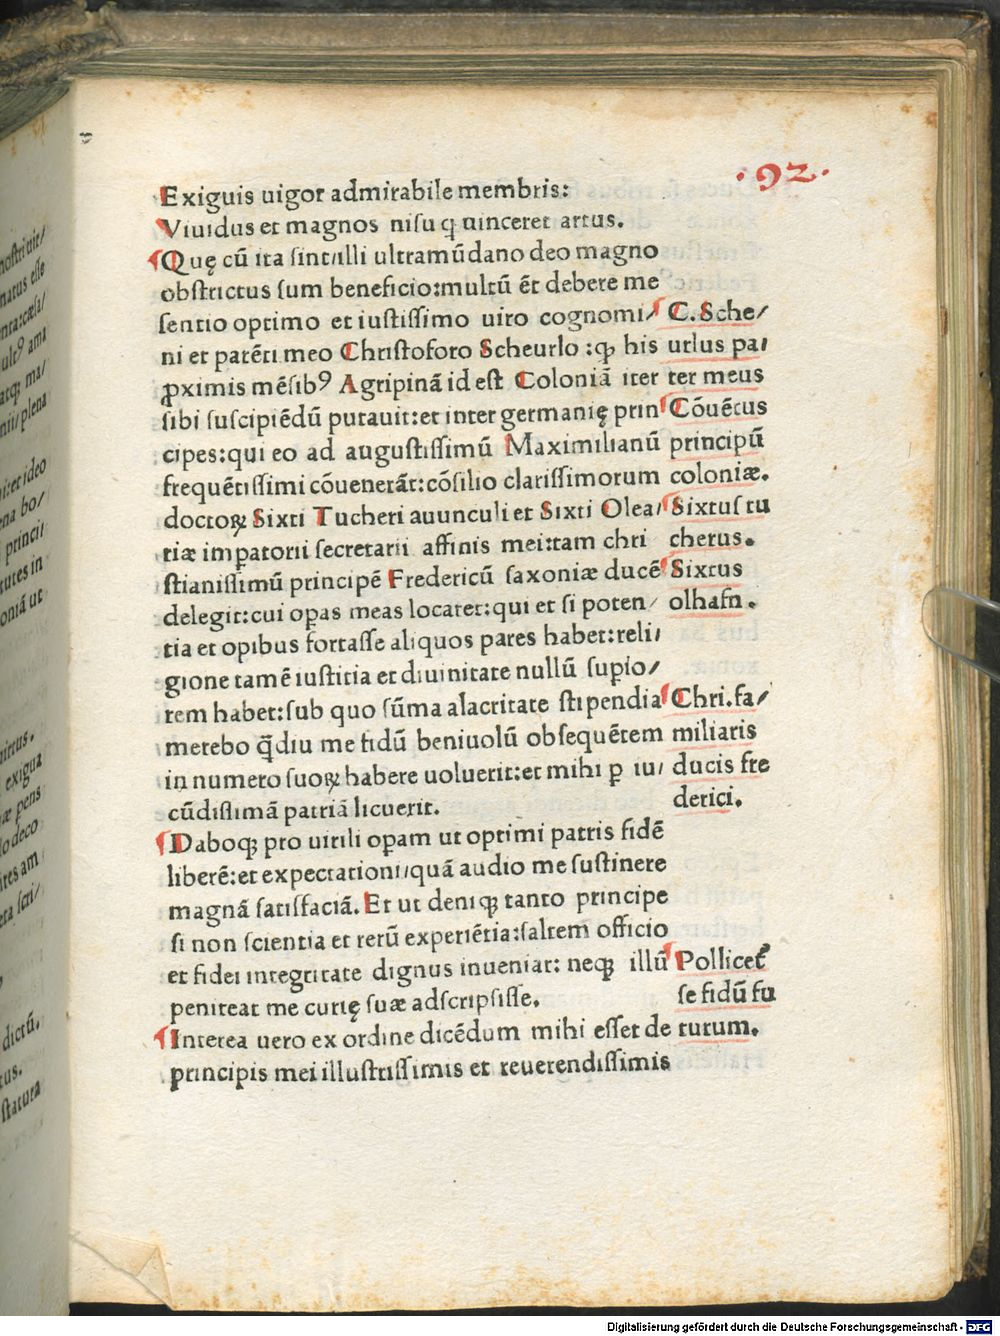 .92.
Exiguis uigor admirabile membris:
Viuidus et magnos nisu q̄ uinceret artus.
Quę cū ita sint:illi ultramūdano deo magno
obstrictus sum beneficio:multū ēt debere me
sentio optimo et iustissimo uiro cognomi/
ni et parēti meo Christoforo Scheurlo :qꝫ his
ꝓximis mēsibꝰ Agripinā id est Coloniā iter
sibi suscipiēdū putauit:et inter germanię prin
cipes:qui eo ad augustissimū Maximilianū
frequētissimi cōuenerāt:cōsilio clarissimorum
doctoꝝ Sixti Tucheri auunculi et Sixti Olea/
riæ imꝑatorii secretarii affinis mei:tam chri
stianissimū principē Fredericū saxoniæ ducē
delegit:cui oꝑas meas locaret:qui et si poten/
tia et opibus fortasse aliquos pares habet:reli/
gione tamē iustitia et diuinitate nullū supio/
rem habet:sub quo sūma alacritate stipendia
merebo q̄diu me fidū beniuolū obsequētem
in numero suoꝝ habere uoluerit:et mihi ꝑ iu/
cūdissimā patriā licuerit.
Daboqꝫ pro uirili oꝑam ut optimi patris fidē
liberē:et expectationi/quā audio me sustinere
magnā satisfaciā. Et ut deniqꝫ tanto principe
si non scientia et rerū experiētia:saltem officio
et fidei integritate dignus inueniar: neqꝫ illū
peniteat me curię suæ adscripsisse.
Interea uero ex ordine dicēdum mihi esset de
principis mei illustrissimis et reuerendissimis
C. Sche/
urlus pa/
ter meus
Cōuētus
principū
coloniæ.
Sixtus tu
cherus.
Sixtus
olhafn.
Chri. fa/
miliaris
ducis fre
derici.
Pollicet᷑
se fidū fu
turum.
Digitalisierung gefördert durch die Deutsche Forschungsgemeinschaft - DFG